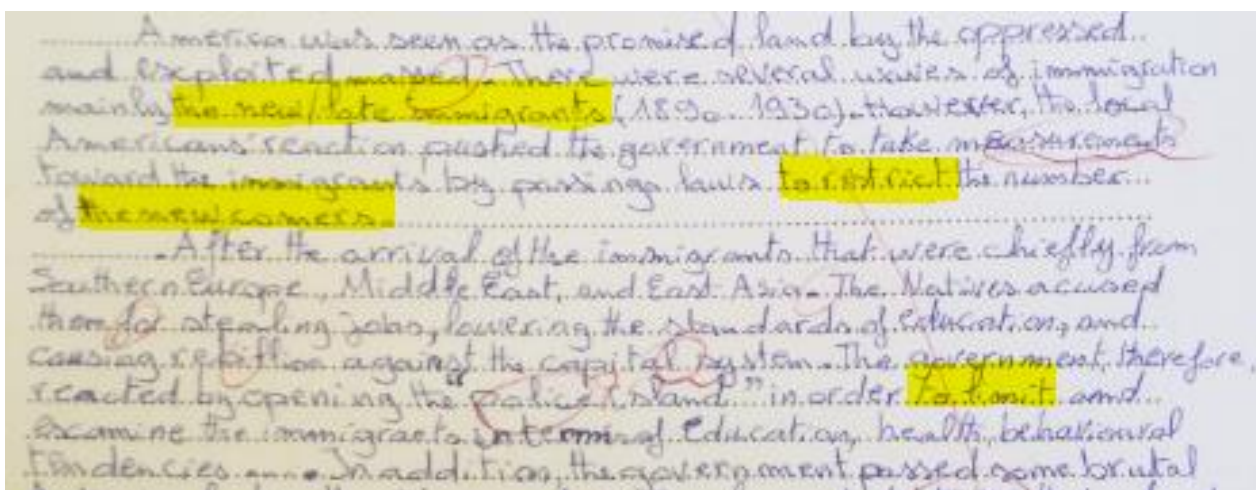 America was seen as the promised land by the oppressed
and exploited massed. There were several waves of immigration
mainly the new/late immigrants (1890-1930). However, the local
Americans' reaction pushed the government to take measurements
toward the immigrants by passing laws to restrict the number
of the newcomers.
After the arrival of the immigrants that were chiefly from
Southern Europe, Middle East, and East Asia. The Natives acused
them for stealing jobs, lowering the standards of education, and
causing rebillion against the capital system. The government, therefore,
reacted by opening the "Police island" in order to limit and
examine the immigrants in terms of Education, health, behavioural
tendencies .... In addition, the government passed some brutal